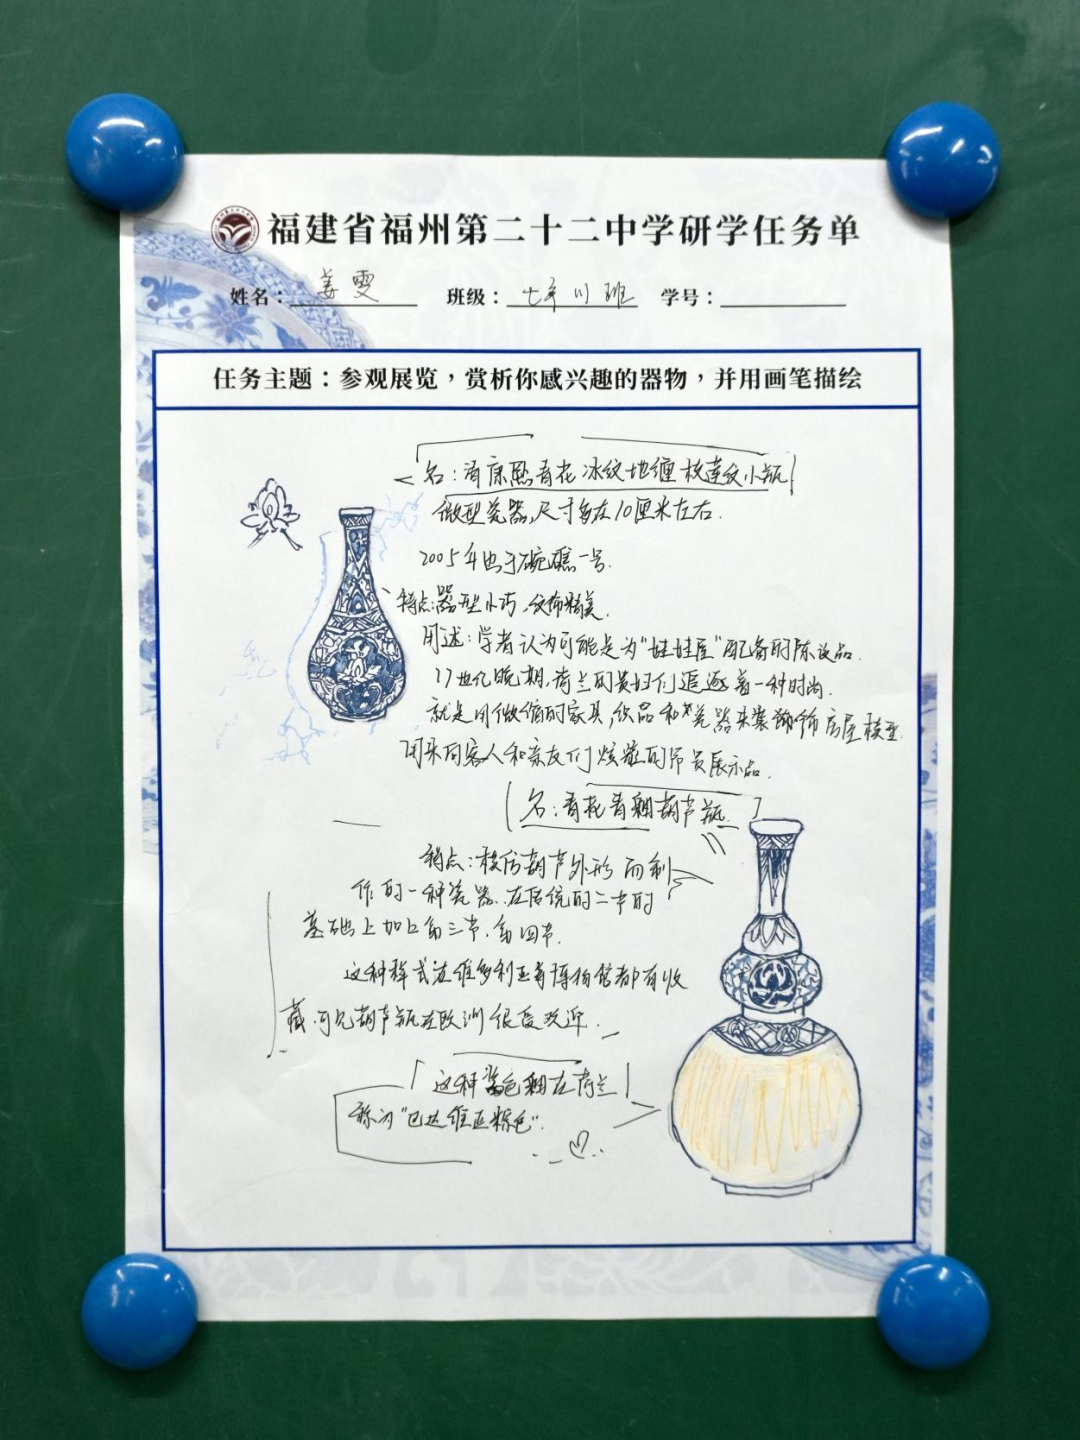 福建省福州第二十二中学研学任务单
姓名：姜雯 班级：七年(1)班 学号：
任务主题：参观展览，赏析你感兴趣的器物，并用画笔描绘
名：清康熙青花冰纹地缠枝莲纹小瓶
微型瓷器，尺寸多在10厘米左右.
2005年出于碗礁一号.
特点：器型小巧，纹饰精美.
用述：学者认为可能是为"娃娃屋"配备的陈设品.
17世纪晚期，荷兰的贵妇们追逐着一种时尚.
就是用微缩的家具，织品和瓷器来装饰房屋模型.
用来向客人和亲友们炫耀的展示品.
名：青花青釉葫芦瓶
特点：模仿葫芦外形而制
作的一种瓷器.在传统的二节的
基础上加上第三节，第四节.
这种样式法维多利亚博物馆都有收
藏.可见葫芦瓶在欧洲很受欢迎.
这种酱色釉在荷兰
称为"巴达维亚棕色".